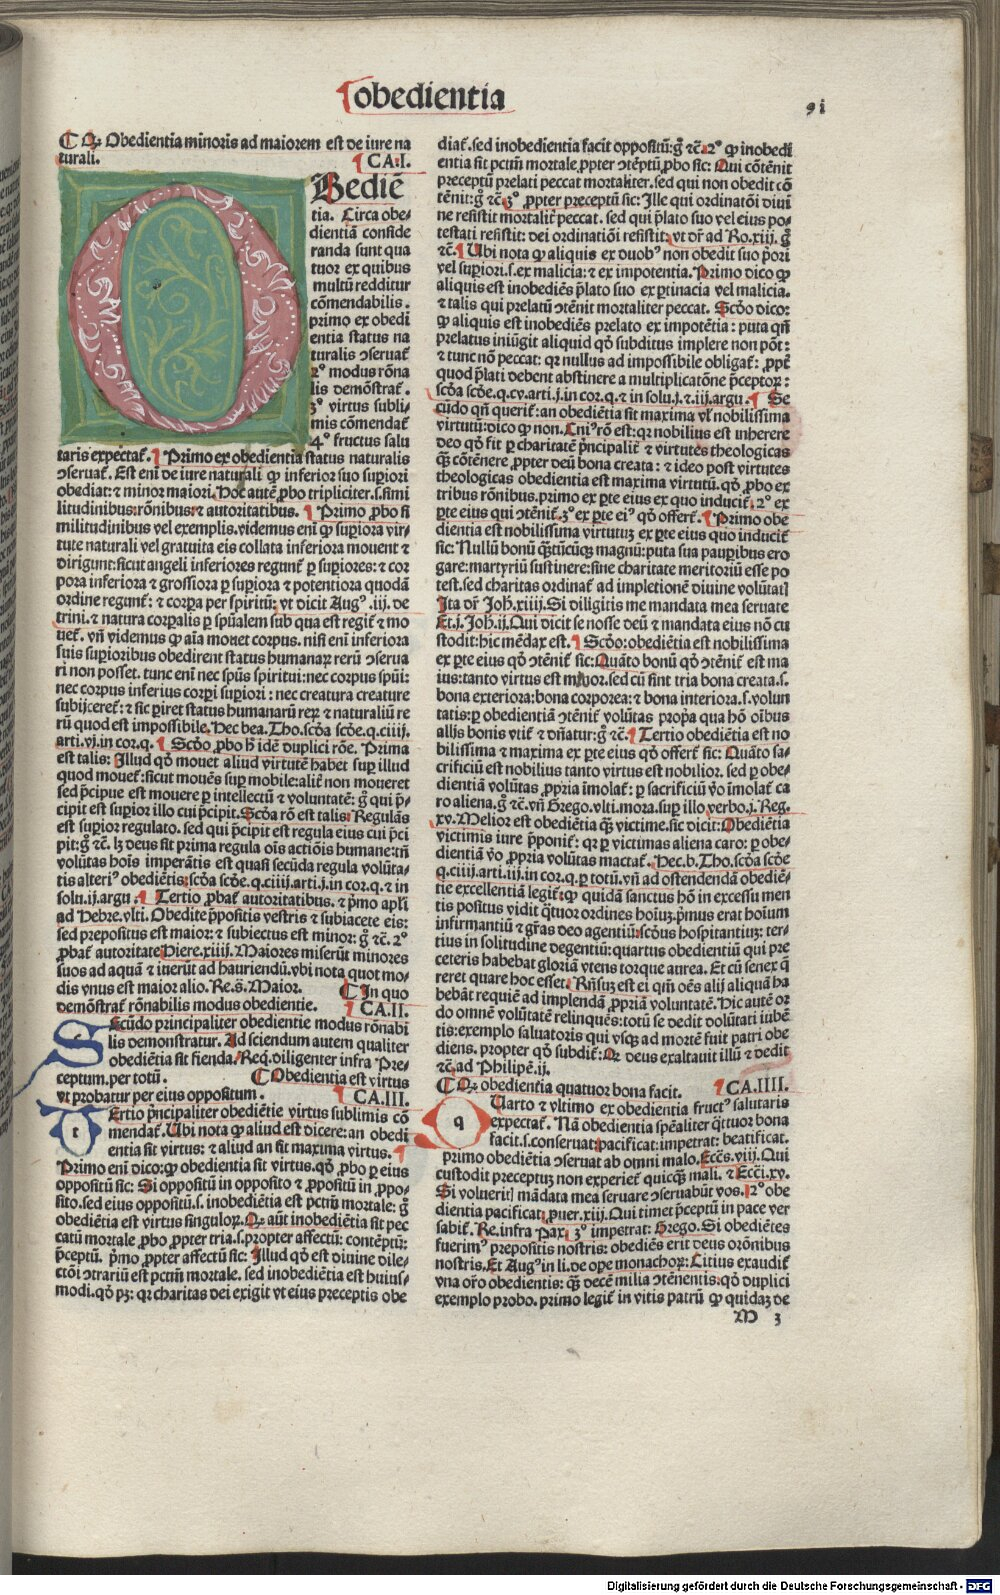 ¶obedientia
91
¶ Qꝙ Obedientia minoris ad maiorem est de iure na
turali. ¶ CA.I.
OBediē
tia. Circa obe⸗
dientiā conside
randa sunt qua
tuor ex quibus
multū redditur
cōmendabilis.
primo ex obedi
entia status na
turalis ꝯseruat᷑
2° modus rōna
lis demōstrat᷑.
3° virtus subli⸗
mis cōmendat᷑
4° fructus salu
taris expectat᷑. ¶ Primo ex obedientia status naturalis
ꝯseruat᷑. Est eni de iure naturali ꝙ inferior suo supiori
obediat: ⁊ minor maiori. Hoc autē ꝓbo tripliciter.s.simi
litudinibus: rōnibus: ⁊ autoritatibus. ¶ Primo ꝓbo si
militudinibus vel exemplis. videmus eni ꝙ supiora vir⸗
tute naturali vel gratuita eis collata inferiora mouent ⁊
dirigunt: sicut angeli inferiores regunt᷑ ꝑ supiores: ⁊ cor
pora inferiora ⁊ grossiora ꝑ supiora ⁊ potentiora quodā
ordine regunt᷑: ⁊ corpa per spiritū: vt dicit Augꝰ .iij. de
trini. ⁊ natura corpalis ꝑ spūalem sub qua est regit᷑ ⁊ mo
uet᷑. vñ videmus ꝙ aīa mouet corpus. nisi eni inferiora
suis supioribus obedirent status humanaꝝ rerū ꝯserua
ri non posset. tunc eni nec spūs spiritui: nec corpus spūi:
nec corpus inferius corpi supiori: nec creatura creature
subijceret᷑: ⁊ sic piret status humanarū reꝝ ⁊ naturaliū re
rū quod est impossibile. Hec bea. Tho. scōa scōe. q. ciiij.
arti. vj. in cor. q. ¶ Scōo ꝓbo h̄ idē duplici rōe. Prima
est talis: Illud qō mouet aliud virtutē habet sup illud
quod mouet᷑: sicut mouēs sup mobile: alit᷑ non moueret
sed p̄cipue est mouere ꝑ intellectū ⁊ voluntatē: ḡ qui p̄⸗
cipit est supior illo cui p̄cipit. Scōa rō est talis: Regulās
est supior regulato. sed qui p̄cipit est regula eius cui p̄ci
pit: ḡ ⁊c̄. lꝫ deus sit prima regula oīs actiōis humane: tñ
volūtas hoīs imperātis est quasi secūda regula volūta⸗
tis alteriꝰ obediētis: scōa scōe. q. ciiij. arti. j. in cor. q. ⁊ in
solu. ij. argu. ¶ Tertio ꝓbat᷑ autoritatibus. ⁊ p̄mo apli
ad Hebre. vlti. Obedite p̄positis vestris ⁊ subiacete eis:
sed prepositus est maior: ⁊ subiectus est minor: ḡ ⁊c̄. 2°
ꝓbat᷑ autoritate Hiere. xiiij. Maiores miserūt minores
suos ad aquā ⁊ iuerūt ad hauriendū. vbi nota quot mo⸗
dis vnus est maior alio. Re. s. Maior. ¶ In quo
demōstrat᷑ rōnabilis modus obedientie. ¶ CA.II.
SEcūdo principaliter obedientie modus rōnabi
lis demonstratur. Ad sciendum autem qualiter
obediētia sit fienda. Req. diligenter infra Pre⸗
ceptum. per totū. ¶ Obedientia est virtus
vt probatur per eius oppositum. ¶ CA.III.
tErtio p̄ncipaliter obediētie virtus sublimis cō
mendat᷑. Ubi nota ꝙ aliud est dicere: an obedi
entia sit virtus: ⁊ aliud an sit maxima virtus. ¶
Primo eni dico: ꝙ obedientia sit virtus. qō ꝓbo ꝑ eius
oppositū sic: Si oppositū in opposito ⁊ ꝓpositū in ꝓpo⸗
sito. sed eius oppositū.s. inobediētia est pctm̄ mortale: ḡ
obediētia est virtus singuloꝝ. Qꝙ aūt inobediētia sit pec
catū mortale ꝓbo ꝓpter tria.s. propter affectū: contēptū:
p̄ceptū. p̄mo ꝓpter affectū sic: Illud qō est diuine dile⸗
ctōi ꝯtrariū est pctm̄ mortale. sed inobediētia est huius⸗
modi. qō pꝫ: qꝛ charitas dei exigit vt eius preceptis obe
diat᷑. sed inobedientia facit oppositū: ḡ ⁊c̄. 2° ꝙ inobedi
entia sit pctm̄ mortale ꝓpter ꝯtēptū ꝓbo sic: Qui cōtēnit
preceptū prelati peccat mortaliter. sed qui non obedit cō
tēnit: ḡ ⁊c̄. 3° ꝓpter preceptū sic: Ille qui ordinatōi diui
ne resistit mortalit᷑ peccat. sed qui p̄lato suo vel eius po⸗
testati resistit: dei ordinatiōi resistit: vt dr̄ ad Ro. xiij. ḡ
⁊c̄. ¶ Ubi nota ꝙ aliquis ex duobꝰ non obedit suo p̄ori
vel supiori.s. ex malicia: ⁊ ex impotentia. Primo dico ꝙ
aliquis est inobediēs p̄lato suo ex ptinacia vel malicia.
⁊ talis qui prelatū ꝯtēnit mortaliter peccat. Scōo dico:
ꝙ aliquis est inobediēs prelato ex impotētia: puta qñ
prelatus iniūgit aliquid qō subditus implere non pōt:
⁊ tunc nō peccat: qꝛ nullus ad impossibile obligat᷑: ꝓpt᷑
quod p̄lati debent abstinere a multiplicatōne p̄ceptoꝝ:
scōa scōe. q. cv. arti. j. in cor. q. ⁊ in solu. j. ⁊ iij. argu. ¶ Se
cūdo qñ querit᷑: an obediētia sit maxima vl' nobilissima
virtutū: dico ꝙ non. Cuiꝰ rō est: qꝛ nobilius est inherere
deo qō fit ꝑ charitatē p̄ncipalit᷑ ⁊ virtutes theologicas
q̄ꝫ cōtēnere ꝓpter deū bona creata: ⁊ ideo post virtutes
theologicas obedientia est maxima virtutū. qō ꝓbo ex
tribus rōnibus. primo ex pte eius ex quo inducit᷑. 2° ex
pte eius qui ꝯtēnit᷑. 3° ex pte eiꝰ qō offert᷑. ¶ Primo obe
dientia est nobilissima virtutuꝫ ex pte eius quo inducit᷑
sic: Nullū bonū q̄ꝫtūcūqꝫ magnū: puta sua paupibus ero
gare: martyriū sustinere: sine charitate meritoriū esse po
test. sed charitas ordinat᷑ ad impletionē diuine volūtat]
Ita dr̄ Joh. xiiij. Si diligitis me mandata mea seruate
Et. j. Joh. ij. Qui dicit se nosse deū ⁊ mandata eius nō cu
stodit: hic mēdax est. ¶ Scōo: obediētia est nobilissima
ex pte eius qō ꝯtēnit᷑ sic: Quāto bonū qō ꝯtēnit᷑ est ma
ius: tanto virtus est maior. sed cū sint tria bona creata.s.
bona exteriora: bona corporea: ⁊ bona interiora.s. volun
tatis: ꝑ obedientiā ꝯtēnit᷑ volūtas propa qua hō oībus
alijs bonis vtit᷑ ⁊ dñatur: ḡ ⁊c̄. ¶ Tertio obediētia est no
bilissima ⁊ maxima ex pte eius qō offert᷑ sic: Quāto sa⸗
crificiū est nobilius tanto virtus est nobilior. sed ꝑ obe⸗
dientiā volūtas ꝓpria imolat᷑: ꝑ sacrificiū v̄o imolat᷑ ca
ro aliena. ḡ ⁊c̄. vñ Grego. vlti. mora. sup illo verbo. j. Reg.
xv. Melior est obediētia q̄ꝫ victime. sic dicit: Obediētia
victimis iure p̄ponit᷑: qꝛ ꝑ victimas aliena caro: ꝑ obe⸗
dientiā v̄o ꝓpria volūtas mactat᷑. Hec. b. Tho. scōa scōe
q. ciiij. arti. iij. in cor. q. ꝑ totū. vñ ad ostendendā obediē⸗
tie excellentiā legit᷑: ꝙ quidā sanctus hō in excessu men
tis positus vidit q̄ttuor ordines hoīuꝫ. p̄mus erat hoīum
infirmantiū ⁊ gr̄as deo agentiū: scōus hospitantiuꝫ: ter⸗
tius in solitudine degentiū: quartus obedientiū qui pre
ceteris habebat gloriā vtens torque aurea. Et cū senex q̄
reret quare hoc esset. Rñsuꝫ est ei qm̄ oēs alij aliquā ha
bebāt requiē ad implendā ꝓpriā voluntatē. Hic autē or
do omnē volūtatē relinquēs: totū se dedit volūtati iubē
tis: exemplo saluatoris qui vsqꝫ ad mortē fuit patri obe
diens. propter qō subdit᷑: Qꝛ deus exaltauit illū ⁊ dedit
⁊c̄. ad Philipē. ij.
¶ Qꝙ obedientia quatuor bona facit. ¶ CA.IIII.
qUarto ⁊ vltimo ex obedientia fructꝰ salutaris
expectat᷑. Nā obedientia spēaliter q̄ttuor bona
facit.s. conseruat: pacificat: impetrat: beatificat.
primo obediētia ꝯseruat ab omni malo. Eccēs. viij. Qui
custodit preceptuꝫ non experiet᷑ quicq̄ꝫ mali. ⁊ Ecci. xv.
Si volueri] mādata mea seruare ꝯseruabūt vos. 2° obe
dientia pacificat. ꝓuer. xiij. Qui timet p̄ceptū in pace ver
sabit᷑. Re. infra Pax. 3° impetrat: Grego. Si obediētes
fuerimꝰ prepositis nostris: obediēs erit deus orōnibus
nostris. Et Augꝰ in li. de ope monachoꝝ: Citius exaudit᷑
vna or̄o obedientis: q̄ꝫ decē milia ꝯtēnentis. qō duplici
exemplo probo. primo legit᷑ in vitis patrū ꝙ quidaꝫ de
M 3
Digitalisierung gefördert durch die Deutsche Forschungsgemeinschaft - DFG